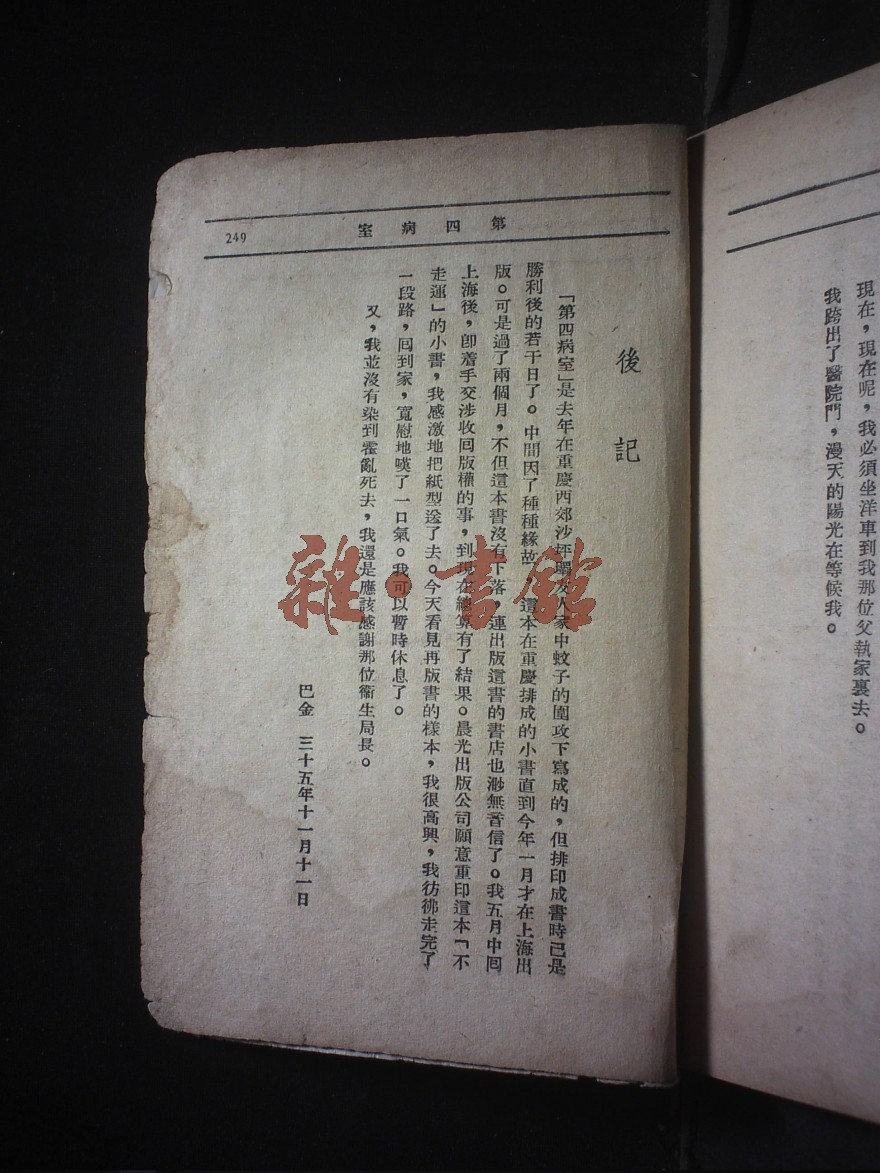 現在，現在呢，我必須坐洋車到我那位父執家裏去。
我跨出了醫院門，漫天的陽光在等候我。
第四病室
249
後記
「第四病室」是去年在重慶西郊沙坪壩友人家中蚊子的圍攻下寫成的，但排印成書時已是
勝利後的若干日了。中間因了種種緣故，這本在重慶排成的小書直到今年一月才在上海出
版。可是過了兩個月，不但這本書沒有下落，連出版這書的書店也渺無音信了。我五月中囘
上海後，卽着手交涉收囘版權的事，到現在總算有了結果。晨光出版公司願意重印這本「不
走運」的小書，我感激地把紙型送了去。今天看見再版書的樣本，我很高興，我彷彿走完了
一段路，囘到家，寬慰地嘆了一口氣。我可以暫時休息了。
又，我並沒有染到霍亂死去，我還是應該感謝那位衞生局長。
巴金 三十五年十一月十一日
雜·書館